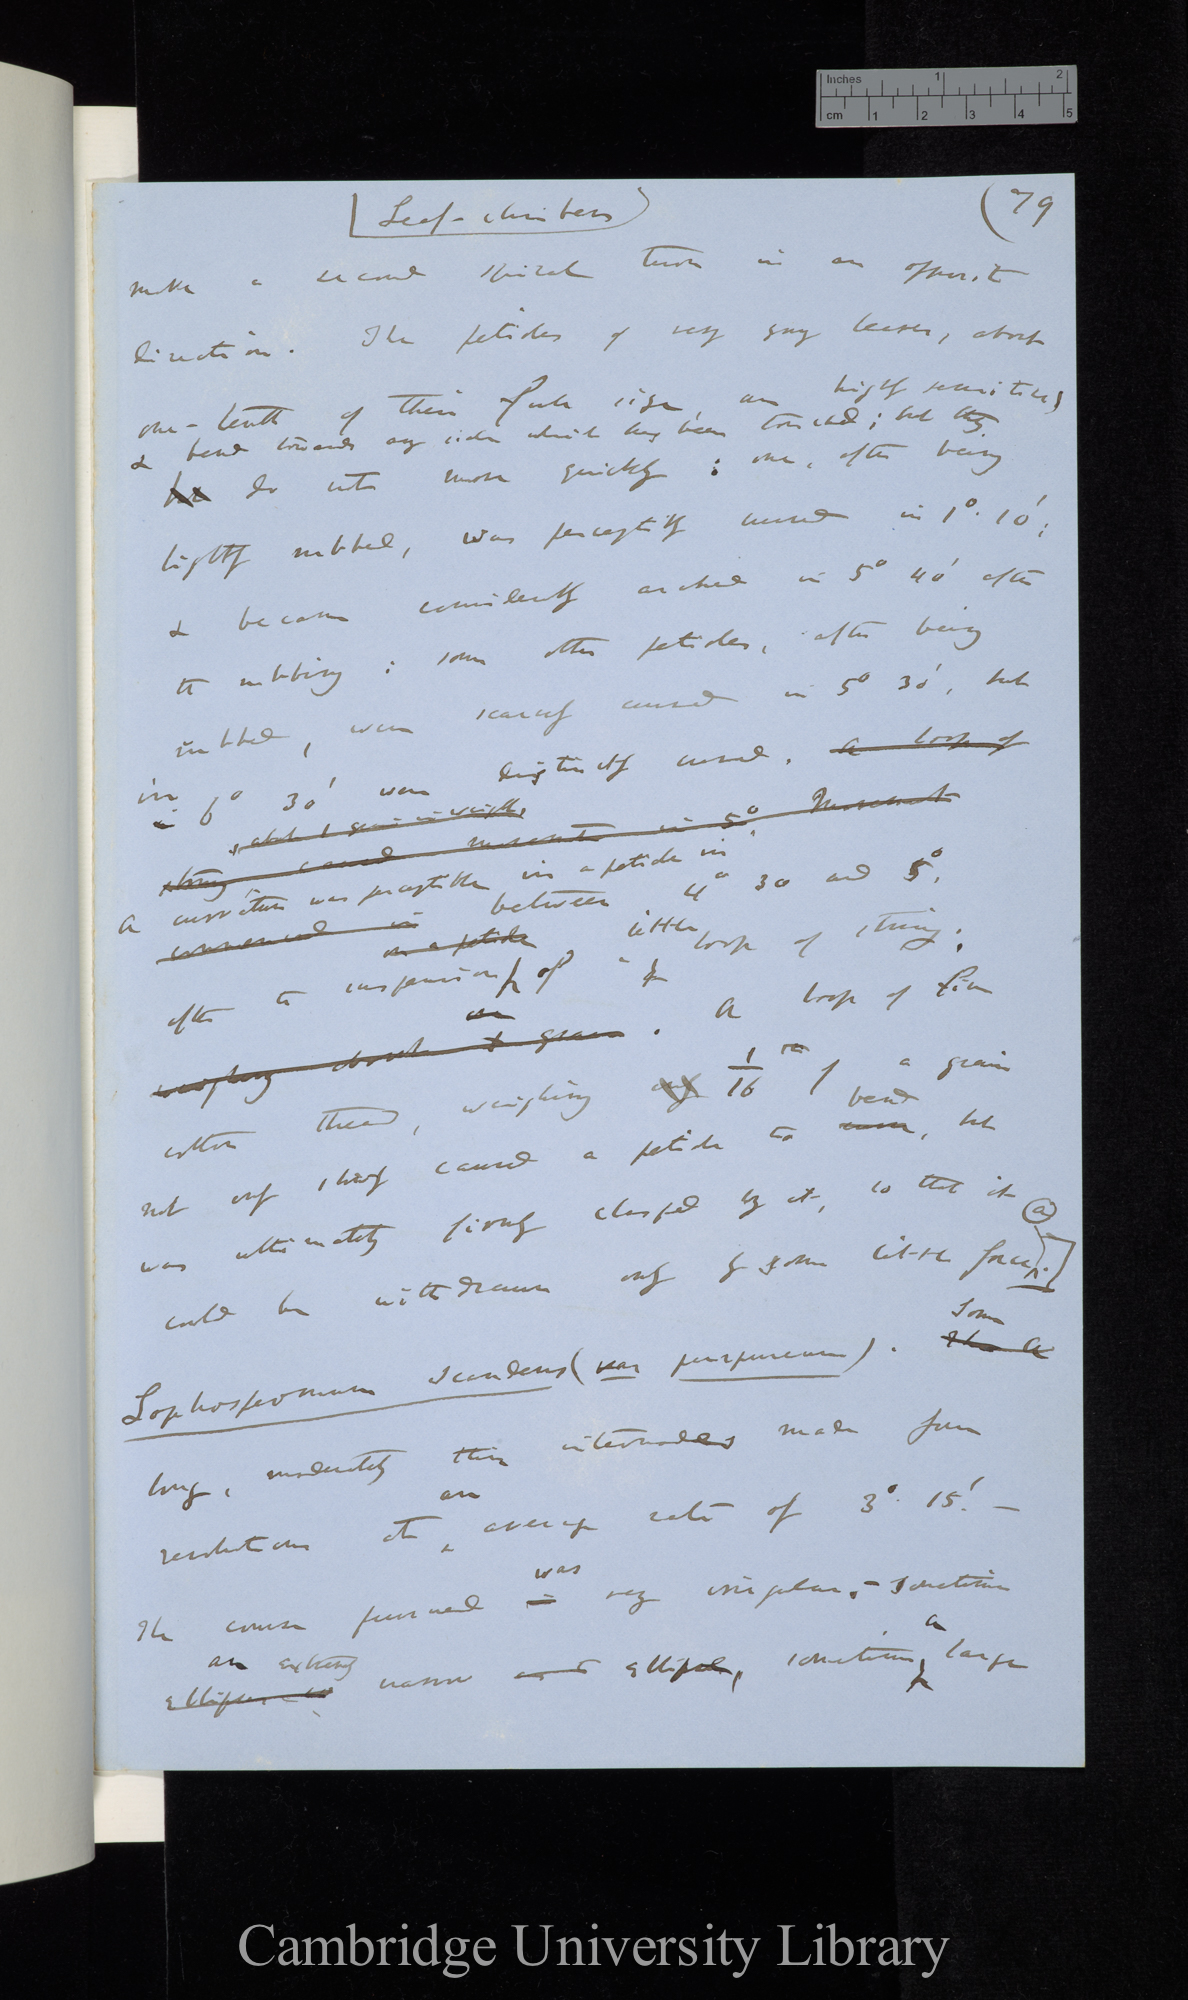 Inches 1 2
cm 1 2 3 4 5
Leaf-climbers (79
make a second spiral turn in an opposit
direction. The petioles of very young leaves, about
one-tenth of their full size, are highly sensitive,
& bend towards any side which has been touched; but they
do not move quickly: one, after being
lightly rubbed, was perceptibly curved in 1° 10';
& became considerably arched in 5° 40' after
the rubbing; some other petioles, after being
rubbed, were scarcely curved in 5° 30', but
in 6° 30' were distinctly curved. a loop of
about grain in weight
string caused movement in 5°, Movement
A curvature was perceptible in a petiole in
commenced in between 4° 30 and 5°,
on a petiole little
after the suspension of a loop of string.
weighing about grain. A loop of fine
cotton thread, weighing 1/16th of a grain
bend
not only slowly caused a petiole to curve, but
was ultimately firmly clasped by it, so that it (a)
could be withdrawn only by some little force.]
Some
Lophospermum scandens (var purpureum). The A
long, moderately thin internodes made four
an
revolutions at average rate of 3° 15'. —
was
The course pursued is very irregular, – sometimes
an extremely a
ellipse narrow ellipse, sometimes large
Cambridge University Library